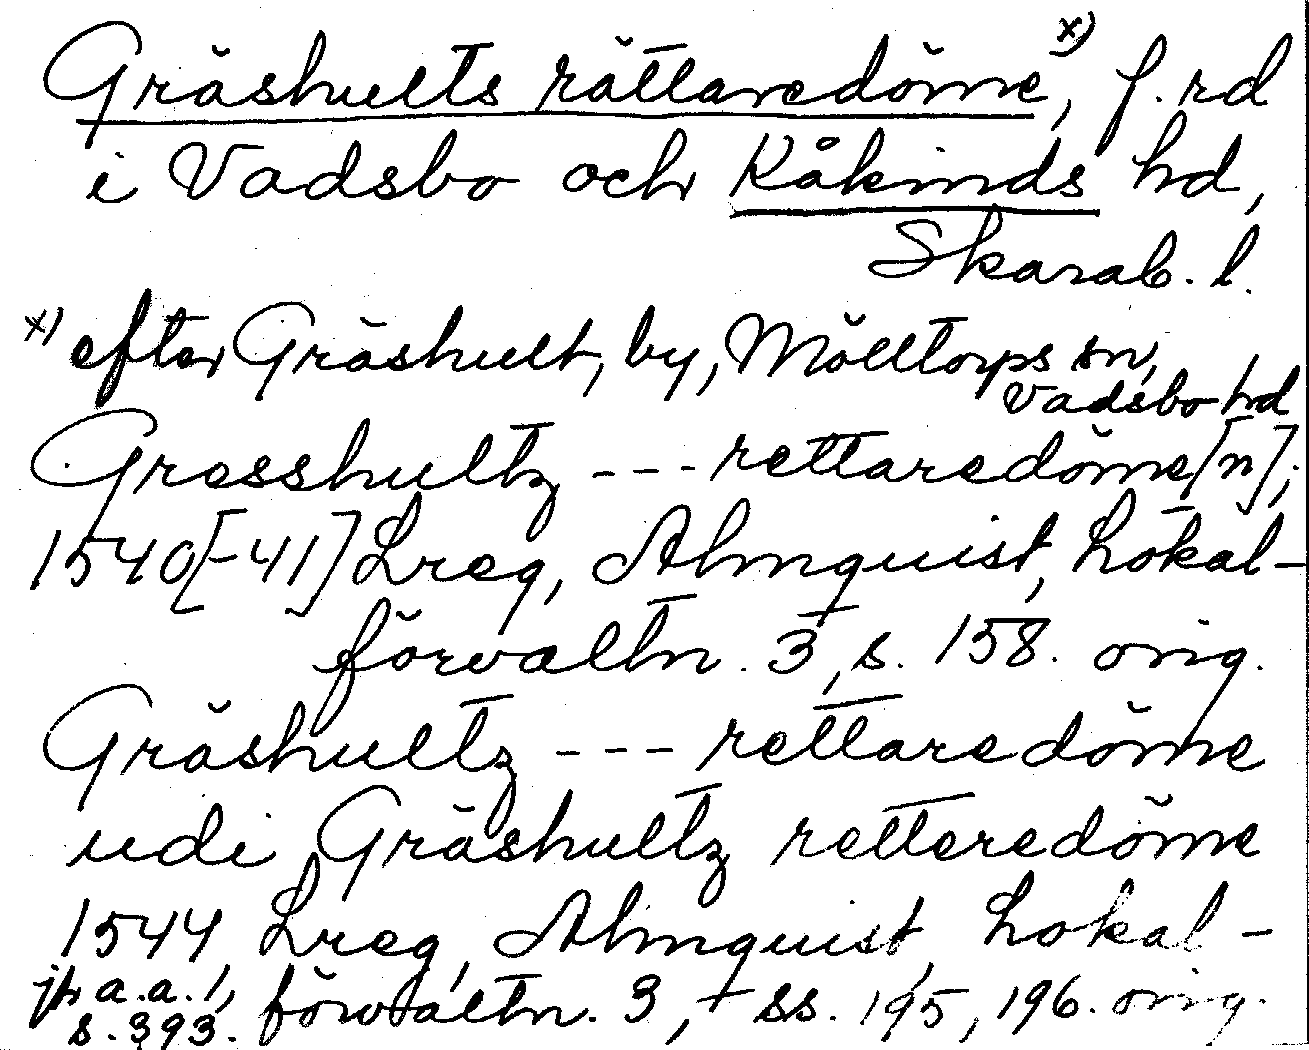 Gräshults rättaredöme x), f. rd
i Vadsbo och Kåkinds hd,
Skarab. l.
x) efter Gräshult, by, Mölltorps sn,
Vadsbo hd
Gresshultz --- rettaredöme[n];
1540[-41] Lreg, Almquist, Lokal-
förvaltn. 3, s. 158. orig.
Gräshultz --- rettaredöme
udi Gräshultz retteredöme
1544, Lreg, Almquist, Lokal-
förvaltn. 3, ss. 195, 196. orig.
jfr a.a. 1,
s. 393.